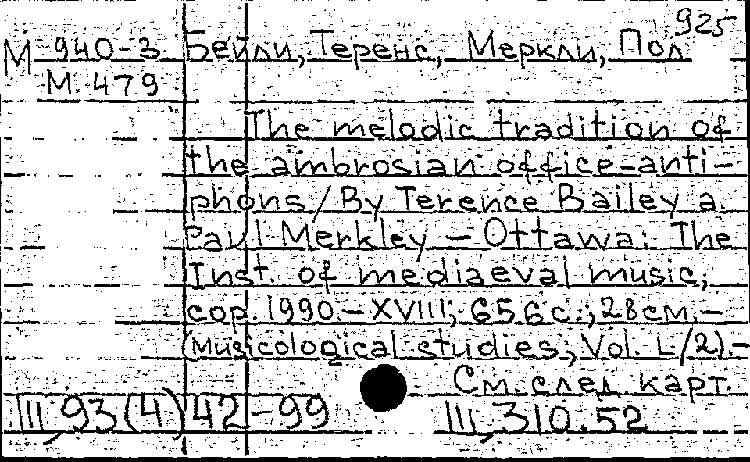 925
М 940-3 Бейли, Теренс, Меркли, Пол
М. 479
The melodic tradition of
the ambrosian office-anti-
phons / By Terence Bailey a.
Paul Merkley — Ottawa: The
Inst. of mediaeval music,
cop. 1990. — XVIII, 656 с.; 28 см. —
(Musicological studies, Vol. L/2). —
См. след. карт.
III, 93(4)42-99 III, 310.52